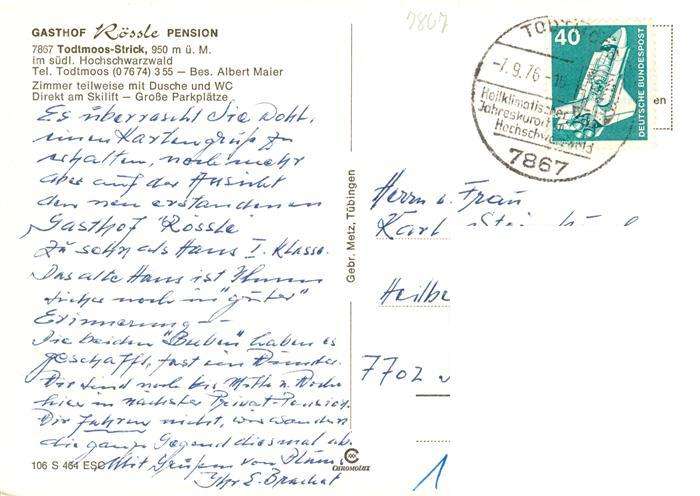 GASTHOF Rössle PENSION
7867 Todtmoos-Strick, 950 m ü. M.
im südl. Hochschwarzwald
Tel. Todtmoos (07674) 355 — Bes. Albert Maier
Zimmer teilweise mit Dusche und WC
Direkt am Skilift — Große Parkplätze
Es überrascht Sie wohl,
einen Kartengruß zu
erhalten, noch mehr
aber auf der Ansicht
den neu erstandenen
Gasthof "Rössle"
zu sehn als Haus I. Klasse.
Das alte Haus ist Ihnen
sicher noch in "guter"
Erinnerung —
Die beiden "Buben" haben es
geschafft, fast ein Wunder.
Wir sind noch bis Mitte n. Woche
hier in nächster Privat-Pension.
Wir fahren nicht, wir wandern
die ganze Gegend diesmal ab.
Mit Grüßen von
Ihr E. Brachat
106 S 464 ESC
CHROMOLUX
Gebr. Metz, Tübingen
7867
TODTMOOS
-7.9.76
Heilklimatischer
Jahreskurort
Hochschwarzwald
7867
40
DEUTSCHE BUNDESPOST
en
Herrn u. Frau
Karl
Heilb
7702
1